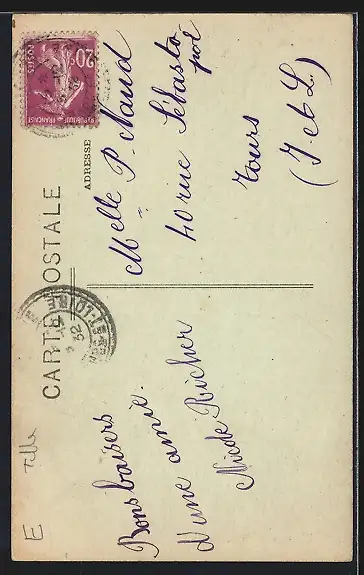 CARTE POSTALE
ADRESSE
Bons baisers
d'une amie.
Nicole Richer
Melle P. Naud
40 rue Sébasto
pol
Tours
(I. et L.)
20c
POSTES
REPUBLIQUE FRANÇAISE
32
E